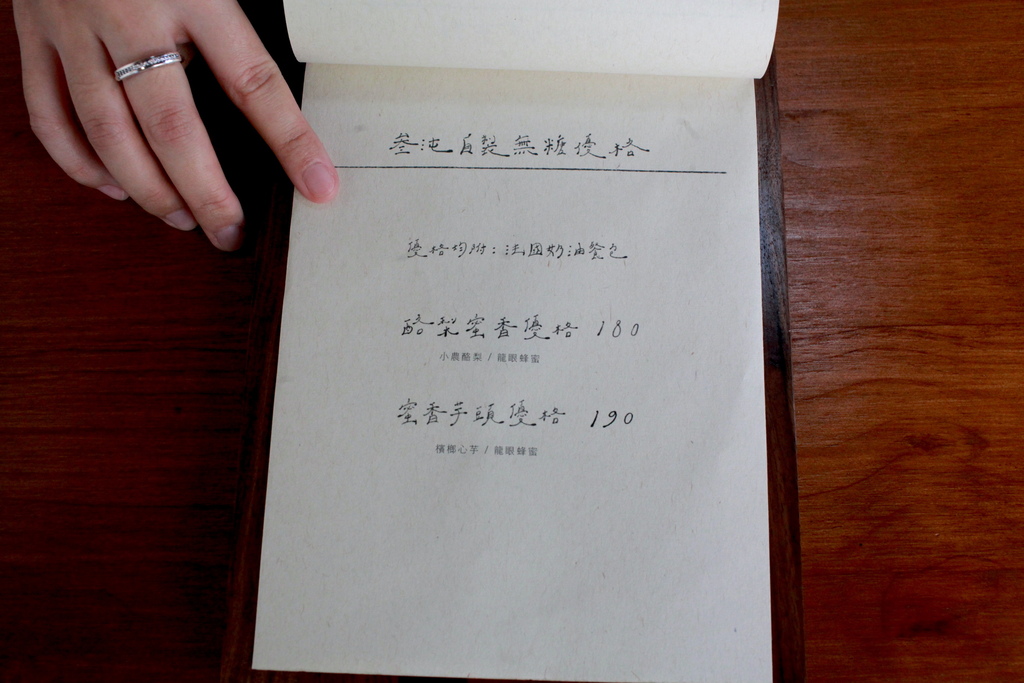 叁沌自製無糖優格
優格均附：法國奶油餐包
酪梨蜜香優格 180
小農酪梨 / 龍眼蜂蜜
蜜香芋頭優格 190
檳榔心芋 / 龍眼蜂蜜